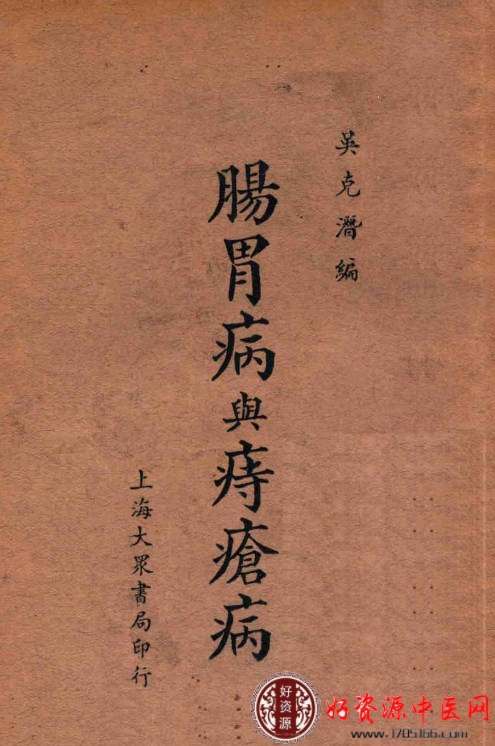 吳克潛編
腸胃病與痔瘡病
上海大眾書局印行
好资源
好资源中医网
www.1705166.com